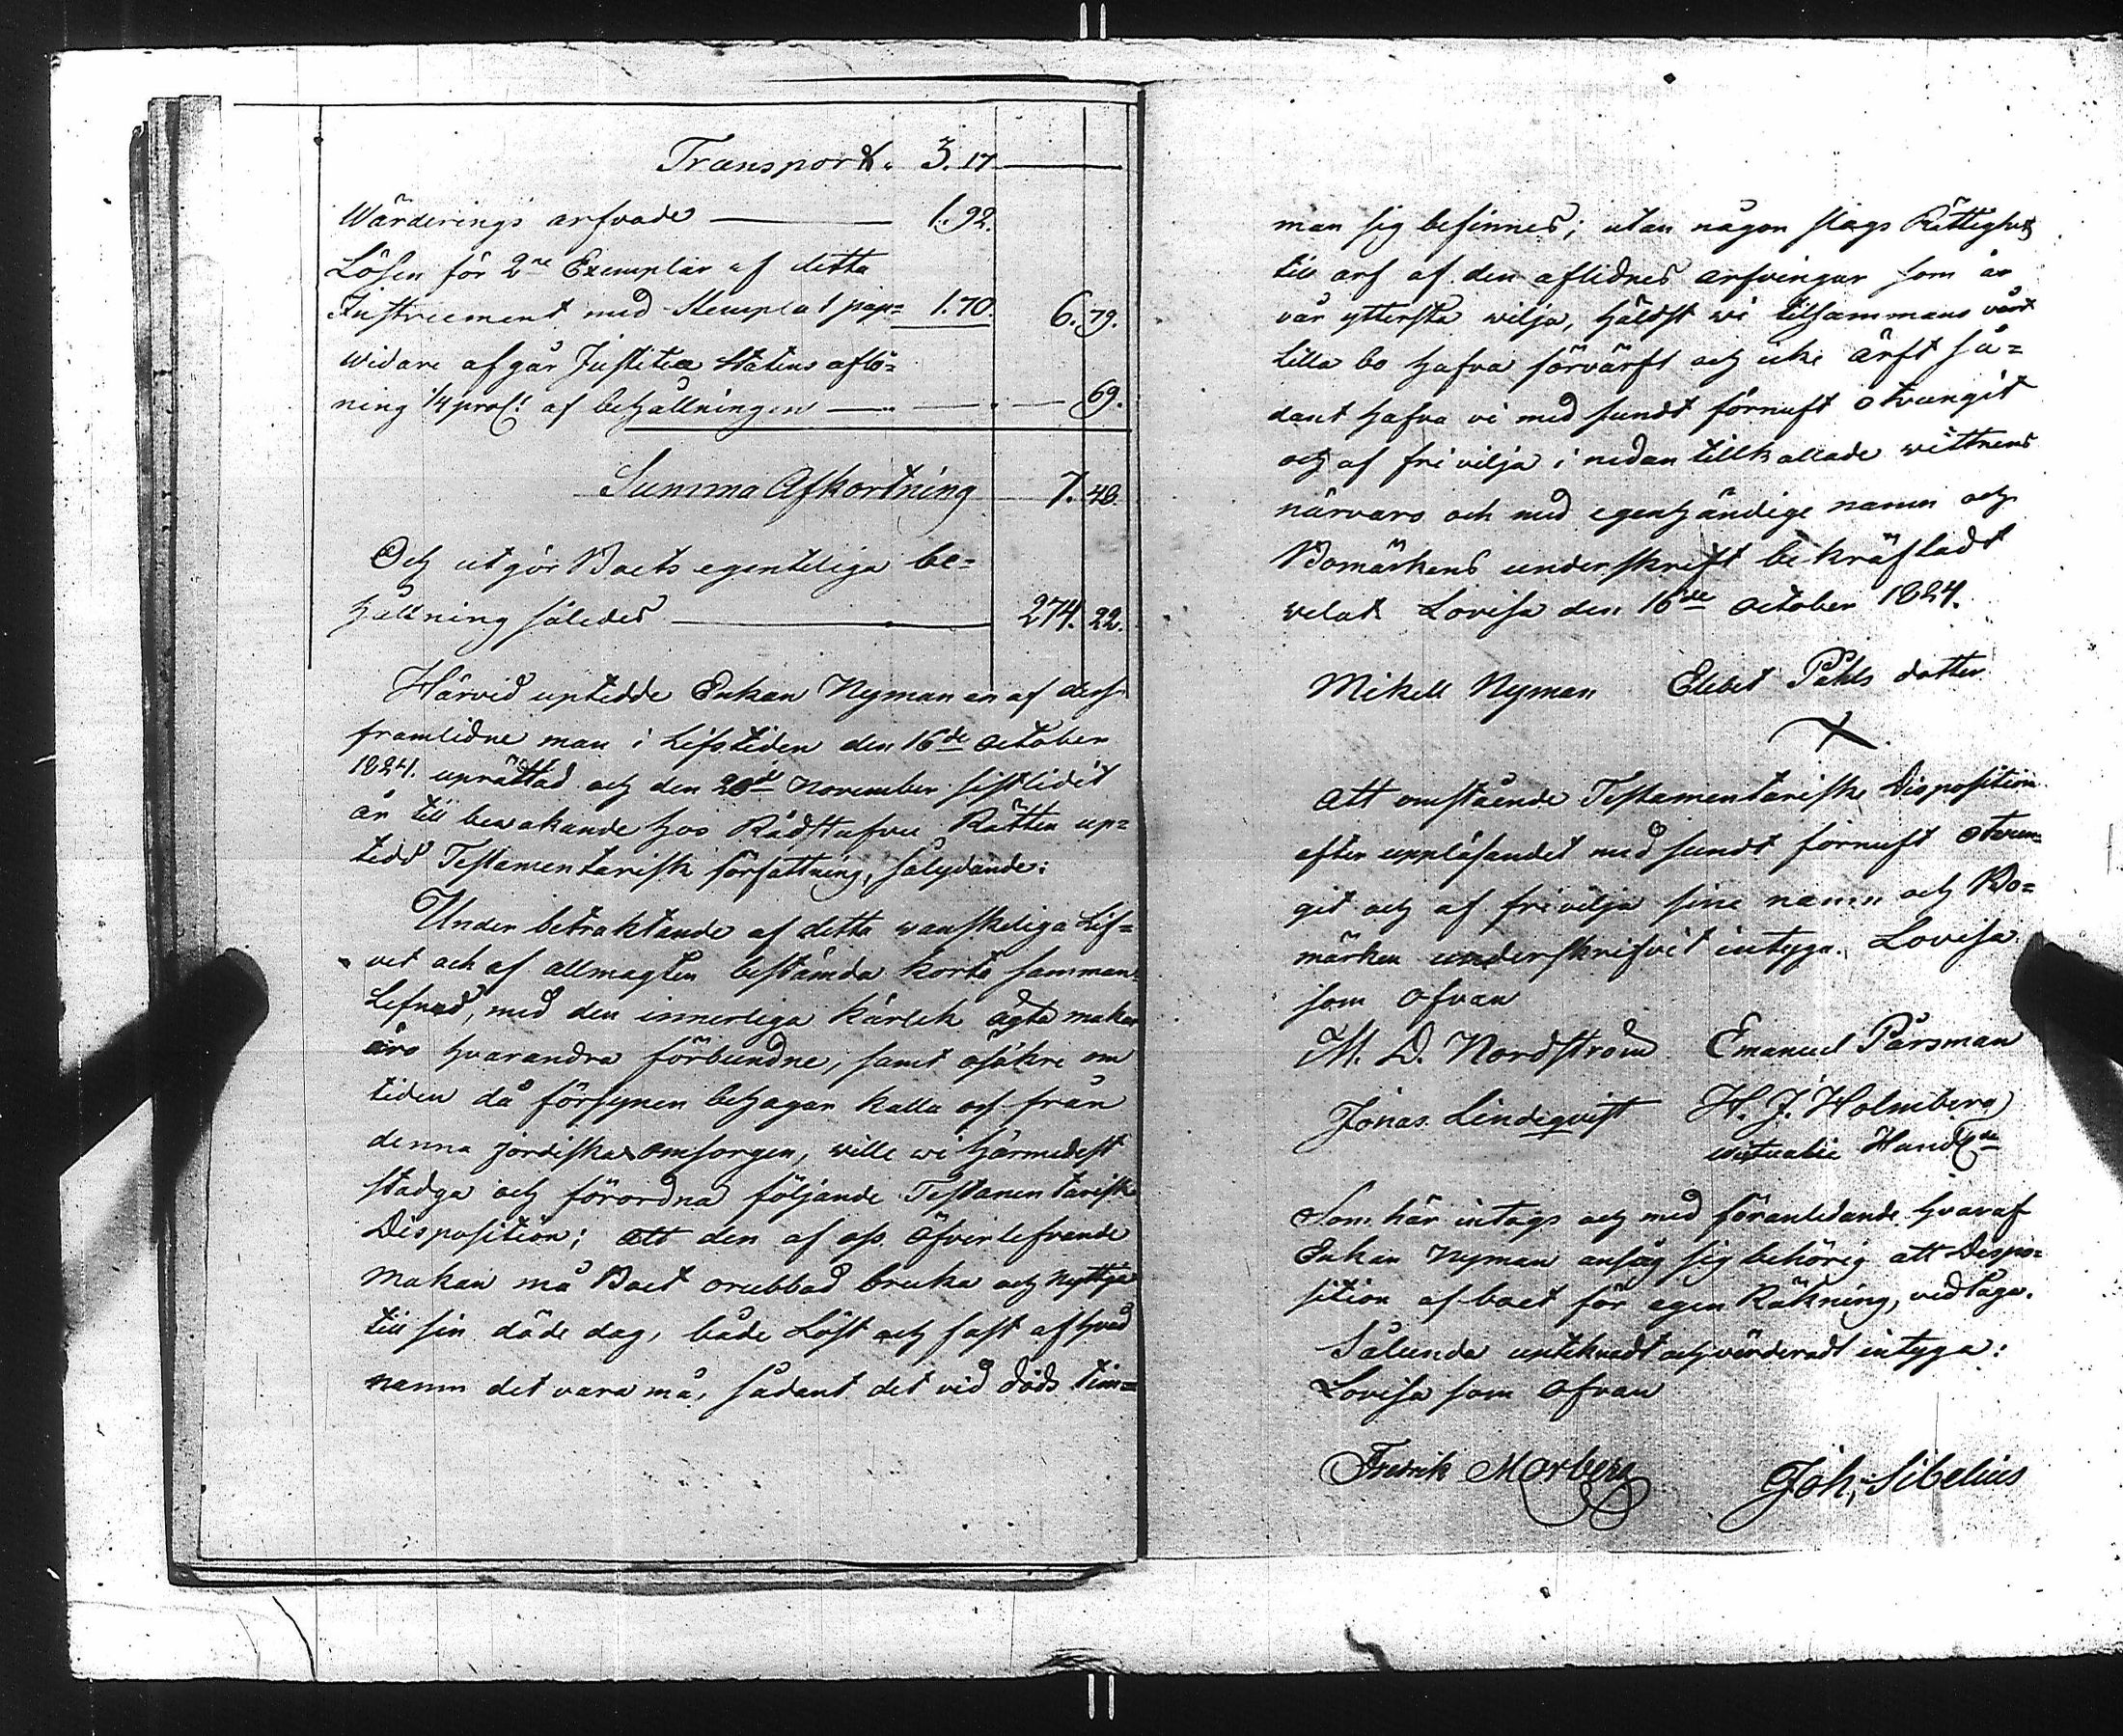 Transport. 3. 17
Wärderings arfvode 1. 92.
Lösen för 2ne Exemplar af detta
Instrument med Stemplat pap= 1. 70. 6. 79.
widare afgår Justitiæ Statens aflö=
ning 1/4 proCt af behållningen 69.
Summa Afkortning 7. 48.
Och utgör Boets egenteliga be=
hållning således 274. 22.
Härvid uptedde Enkan Nyman en af dess
framlidne man i Lifstiden den 16de October
1824. uprättad och den 20de November sistlidit
år till bevakande hos Rådstufvu Rätten up=
tedd Testamentarisk författning, sålydande:
Under betraktande af detta vanskeliga Lif=
vet och af allmagten bestämda korta samman=
Lefnad, med den innerliga kärlek ägta makar
äro hvarandra förbundne, samt osäkre om
tiden då försynen behagar kalla oss från
denna jordiska omsorgen, ville wi härmedelst
stadga och förordna följande Testamentarisk
Disposition; att den af oss öfverlefvande
makan må Boet orubbad bruka och nyttja
till sin döde dag, både Löst och fast af hvad
namn det vara må, sådant det vid döds tim=
man sig befinnes; utan någon slags Rättighet
till arf af den aflidnes arfvingar som är
vår yttersta wilja, häldst wi tilsammans vårt
Lilla bo hafva förvärft och icke ärft så=
dant hafva vi med sundt förnuft otvungit
och af fri vilja i nedan tillkallade wittnens
närvaro och med egenhändige namn och
Bomärkens underskrift bekräftadt
velat Lovisa den 16de October 1824.
Mikell Nyman Elebet Påhls dotter
X
Att omstående Testamentariske Disposition
efter uppläsandet med sundt förnuft otvun=
git och af fri vilja sine namn och Bo=
märken underskrifvit intyga. Lovisa
som ofvan
M. D. Nordström Emanuel Pärsman
Jonas Lindeqvist H. J. Holmberg
victualie Handl
Som här intogs och med föranledande hvaraf
Enkan Nyman ansåg sig behörig att Dispo=
sition af boet för egen Räkning, vidtaga.
Sålunda uptecknadt och värderadt intyga:
Lovisa som ofvan
Fredrik Morberg Joh: Sibelius